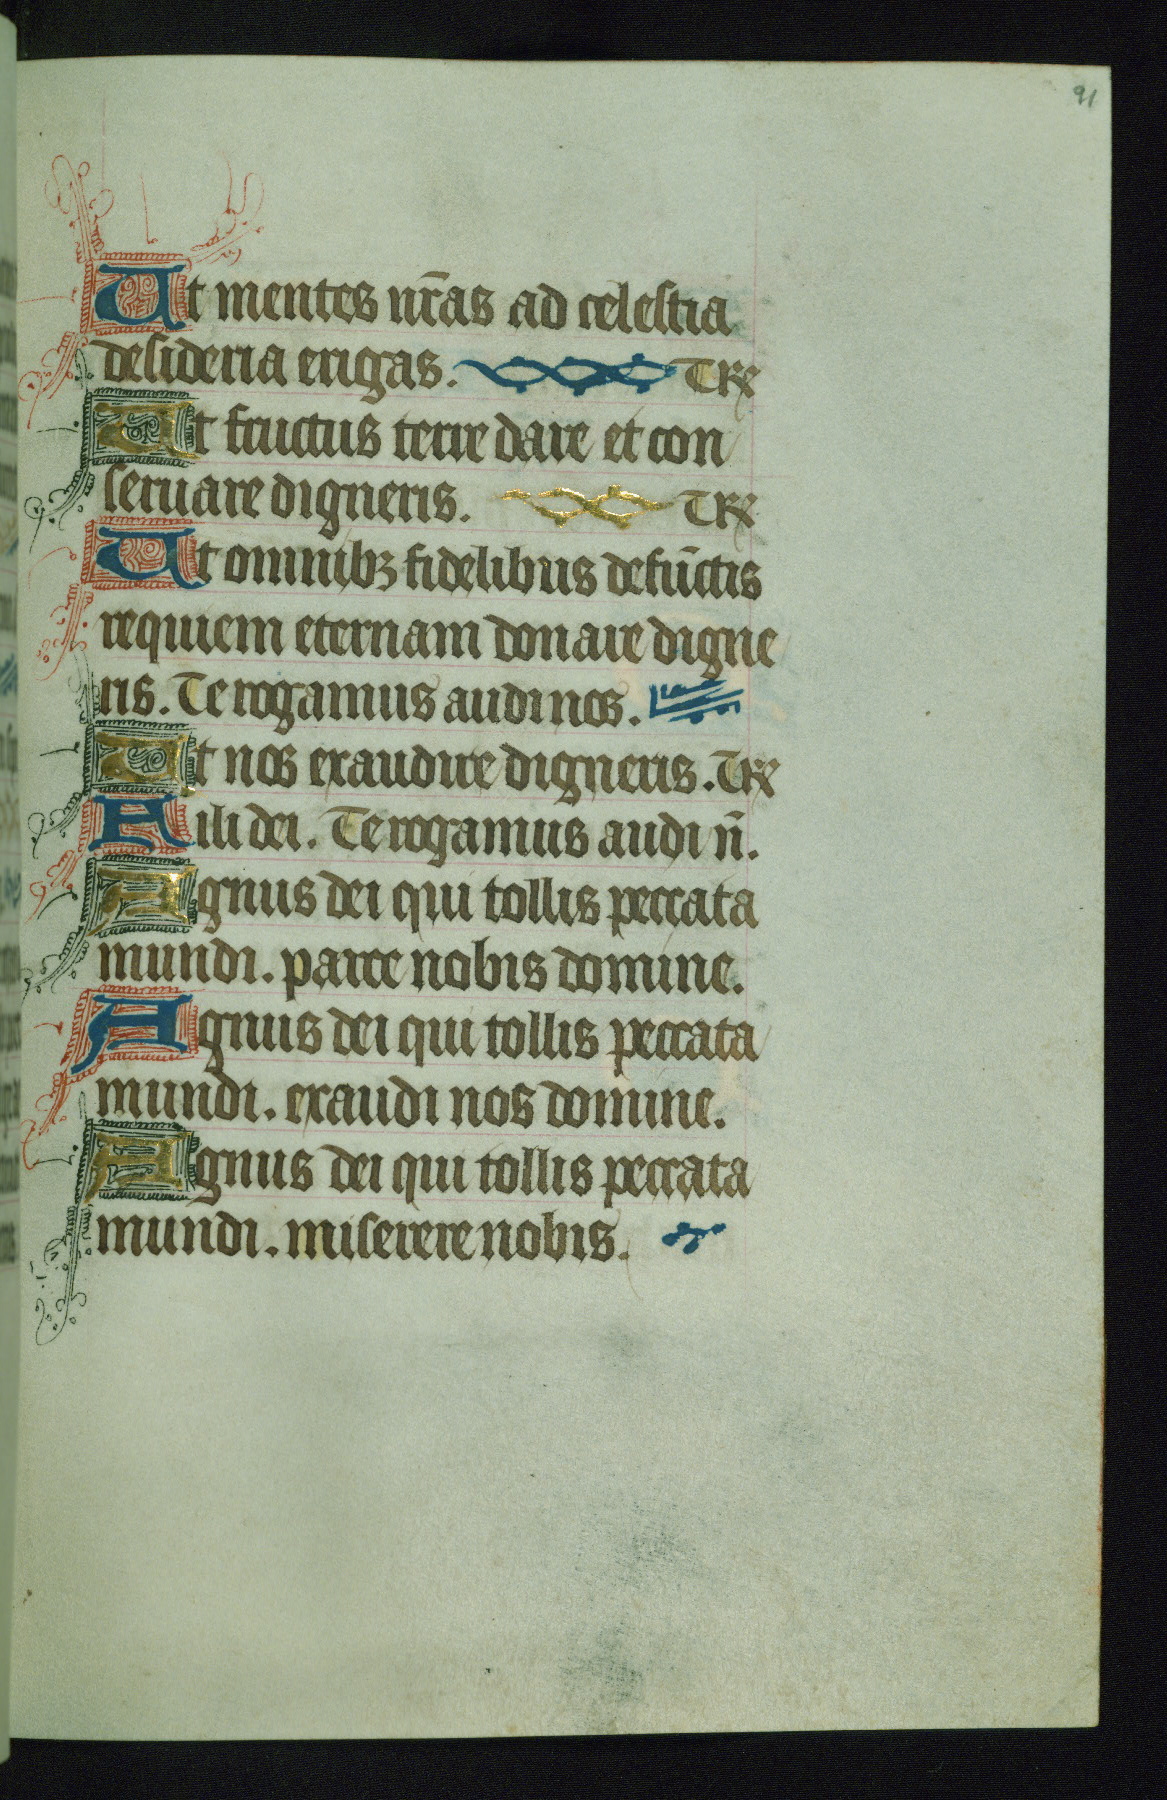 91
Ut mentes nr̄as ad celestia
desideria erigas. Te r
Ut fructus terre dare et con
seruare digneris. Te r
Ut omnibꝫ fidelibus defūctis
requiem eternam donare digne
ris. Te rogamus audi nos.
Ut nos exaudire digneris. Te r
Fili dei. Te rogamus audi n̄.
Agnus dei qui tollis peccata
mundi. parce nobis domine.
Agnus dei qui tollis peccata
mundi. exaudi nos domine.
Agnus dei qui tollis peccata
mundi. miserere nobis.